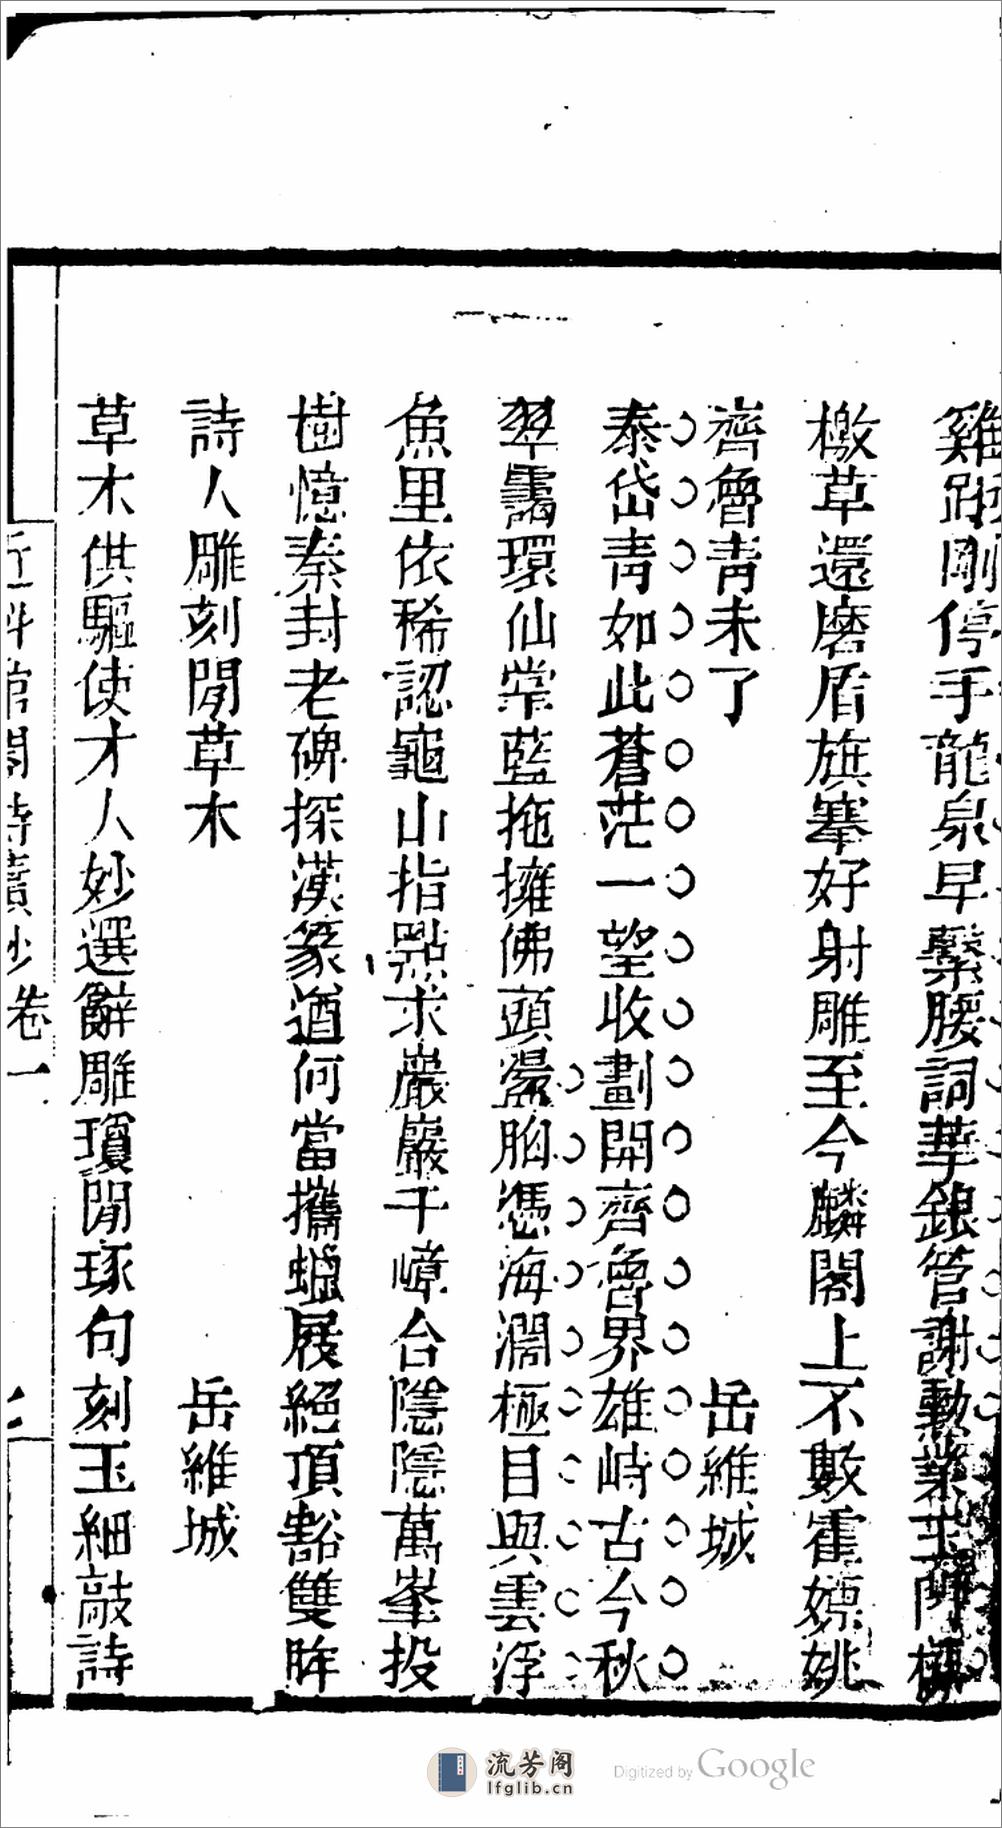 雞距剛停手龍泉早繫腰詞華銀管謝勳業玉門
檄草還磨盾旗搴好射雕至今麟閣上不數霍嫖姚
齊魯青未了 岳維城
泰岱青如此蒼茫一望收劃開齊魯界雄峙古今秋
翠靄環仙掌藍拖擁佛頭盪胸憑海濶極目與雲浮
魚里依稀認龜山指點求巖巖千嶂合隱隱萬峯投
樹憶秦封老碑探漢篆遒何當攜蠟屐絕頂豁雙眸
詩人雕刻閒草木 岳維城
草木供驅使才人妙選辭雕瓊閒琢句刻玉細敲詩
近科館閣詩賡抄卷一
流芳阁
lfglib.cn
Digitized by Google